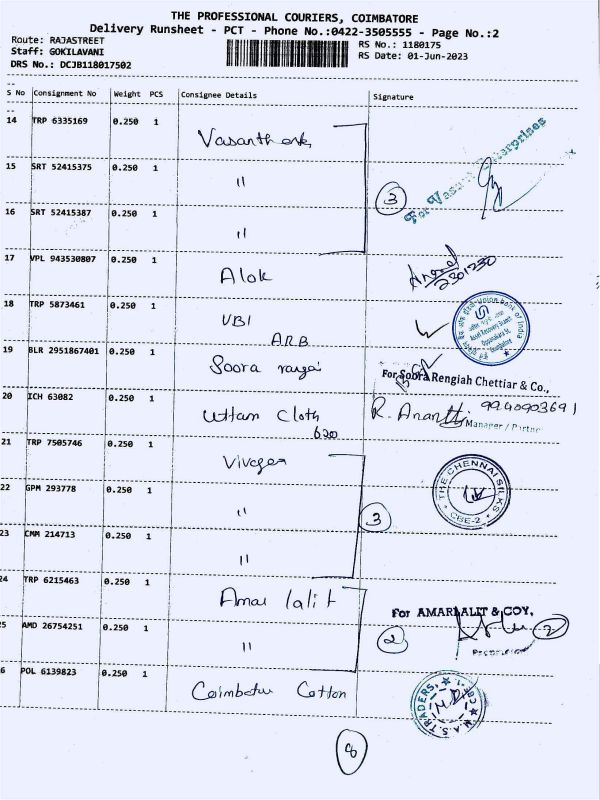 THE PROFESSIONAL COURIERS, COIMBATORE
Delivery Runsheet - PCT - Phone No.:0422-3505555 - Page No.:2
Route: RAJASTREET
RS No.: 1180175
Staff: GOKILAVANI
RS Date: 01-Jun-2023
DRS No.: DCJB118017502
S No Consignment No Weight PCS Consignee Details Signature
14 TRP 6335169 0.250 1
15 SRT 52415375 0.250 1 "
3 For Enterprises
16 SRT 52415387 0.250 1 "
17 VPL 943530807 0.250 1 Alok
18 TRP 5873461 0.250 1 UBI
A.R.B
Union Bank of India
19 BLR 2951867401 0.250 1 Soora
For Soora Rengiah Chettiar & Co.,
20 ICH 63082 0.250 1 Uttam Cloth
620
R. Ananth 9940903691
Manager / Partner
21 TRP 7505746 0.250 1
THE CHENNAI SILKS
CBE-2
22 GPM 293778 0.250 1 "
3
23 CMM 214713 0.250 1 "
24 TRP 6215463 0.250 1 Amar lalit
For AMARLALIT & COY,
25 AMD 26754251 0.250 1 "
2 2
6 POL 6139823 0.250 1 Coimbatore Cotton
M.A.S. TRADERS, CBE-1
8